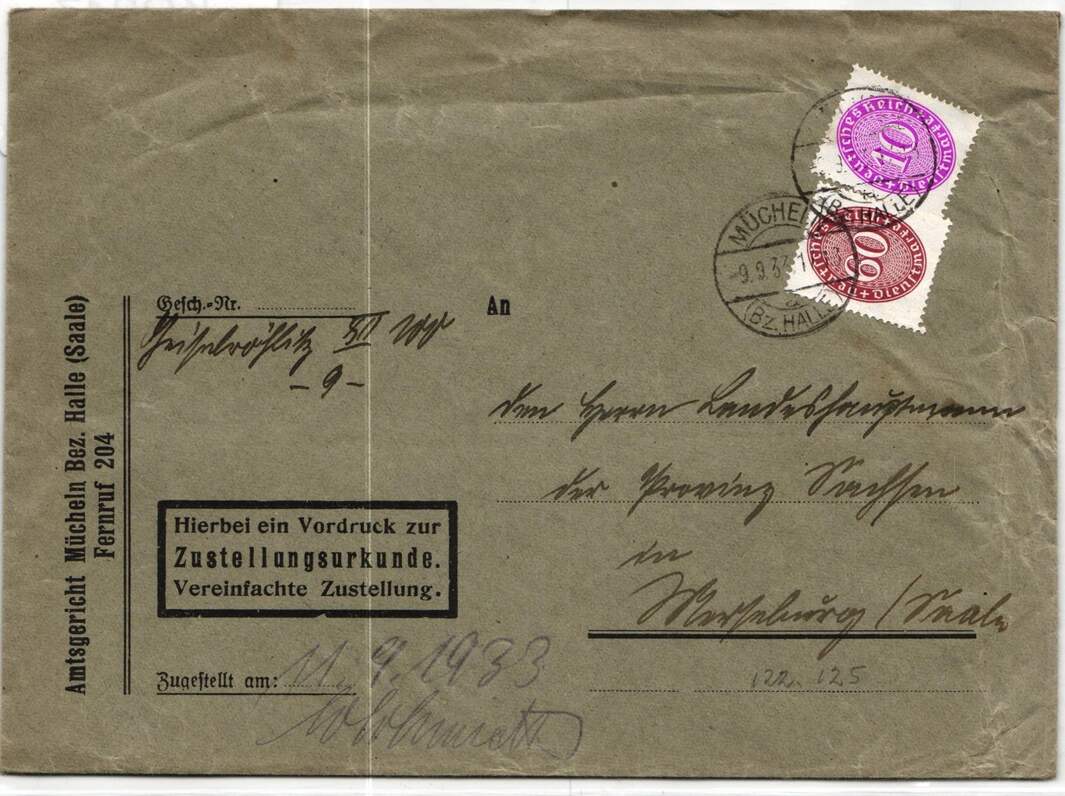 Amtsgericht Mücheln Bez. Halle (Saale)
Fernruf 204
Gesch.-Nr.
Geiselröhlitz XI
- 9 -
An
den Herrn Landeshauptmann
der Provinz Sachsen
in
Merseburg / Saale
Hierbei ein Vordruck zur
Zustellungsurkunde.
Vereinfachte Zustellung.
Zugestellt am: 11. 9. 1933
Schmidt
122. 125
Deutsches Reich
10
Dienstmarke
Deutsches Reich
60
Dienstmarke
MÜCHEL
-9.9.33
(BZ. HALLE